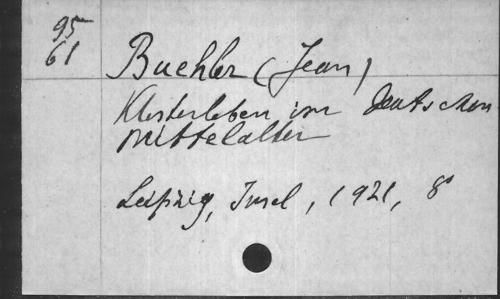 95
61
Buehler (Jean)
Klosterleben im deutschen
Mittelalter
Leipzig, Insel, 1921, 8°